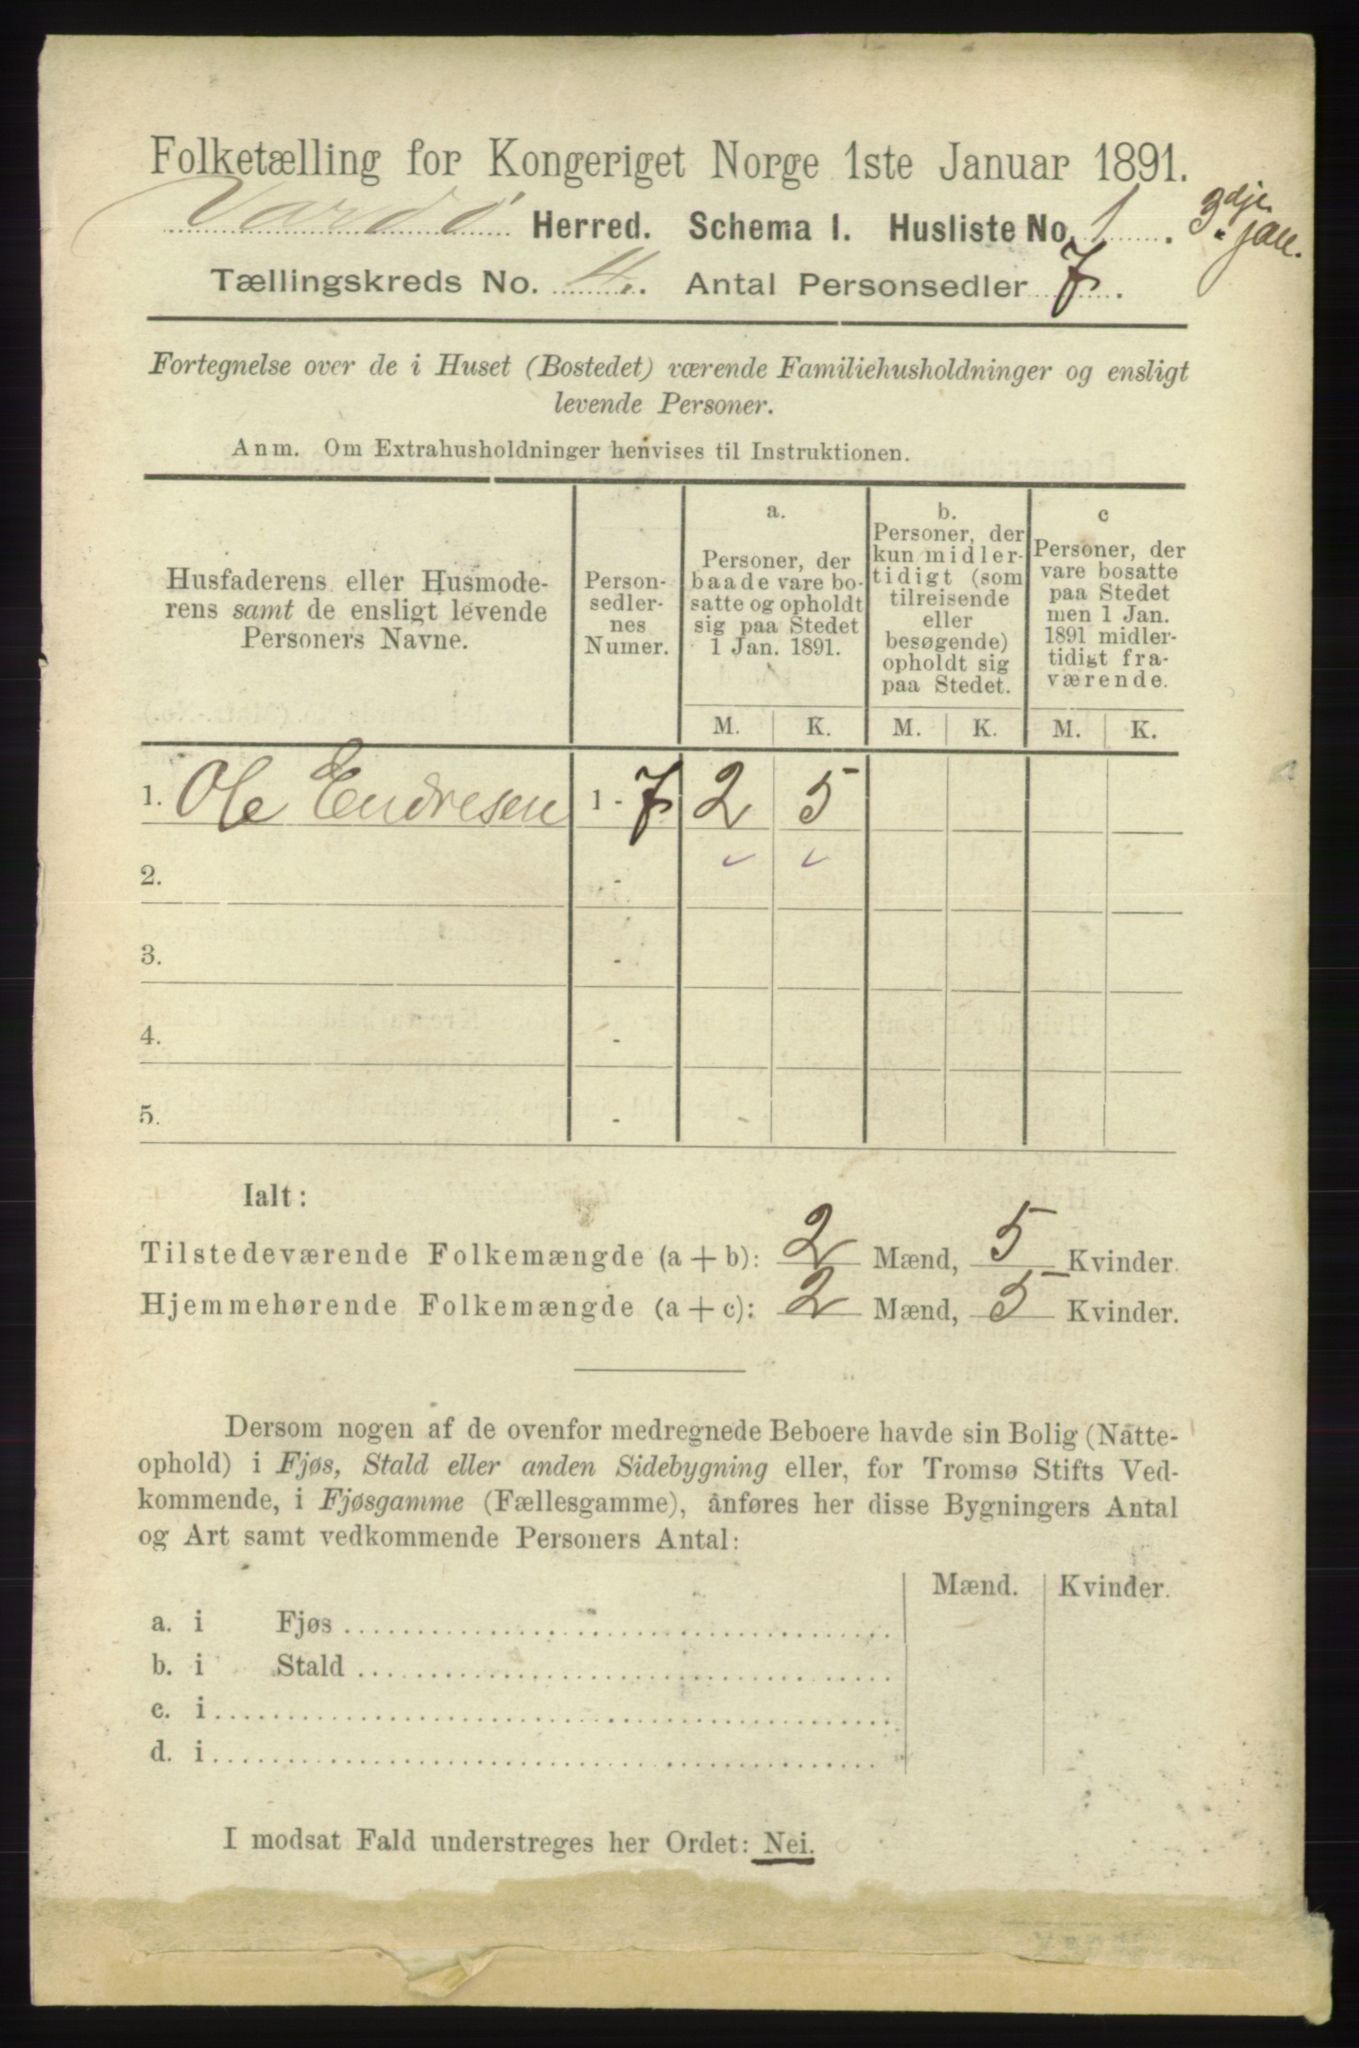 Folketælling for Kongeriget Norge 1ste Januar 1891.
Vardø Herred. Schema I. Husliste No. 1. 3dje Jan.
Tællingskreds No. 4. Antal Personsedler 7.
Fortegnelse over de i Huset (Bostedet) værende Familiehusholdninger og ensligt
levende Personer.
Anm. Om Extrahusholdninger henvises til Instruktionen.
Husfaderens eller Husmode-
rens samt de ensligt levende
Personers Navne.
Person-
sedler-
nes
Numer.
a.
Personer, der
baade vare bo-
satte og opholdt
sig paa Stedet
1 Jan. 1891.
b.
Personer, der
kun midler-
tidigt (som
tilreisende
eller
besøgende)
opholdt sig
paa Stedet.
c
Personer, der
vare bosatte
paa Stedet
men 1 Jan.
1891 midler-
tidigt fra-
værende.
M. K. M. K. M. K.
1. Ole Endresen 1 - 7 2 5
2. -
3. -
4. -
5. -
Ialt:
Tilstedeværende Folkemængde (a + b): 2 Mænd, 5 Kvinder.
Hjemmehørende Folkemængde (a + c): 2 Mænd, 5 Kvinder.
Dersom nogen af de ovenfor medregnede Beboere havde sin Bolig (Natte-
ophold) i Fjøs, Stald eller anden Sidebygning eller, for Tromsø Stifts Ved-
kommende, i Fjøsgamme (Fællesgamme), anføres her disse Bygningers Antal
og Art samt vedkommende Personers Antal:
Mænd. Kvinder.
a. i Fjøs
b. i Stald
c. i
d. i
I modsat Fald understreges her Ordet: Nei.